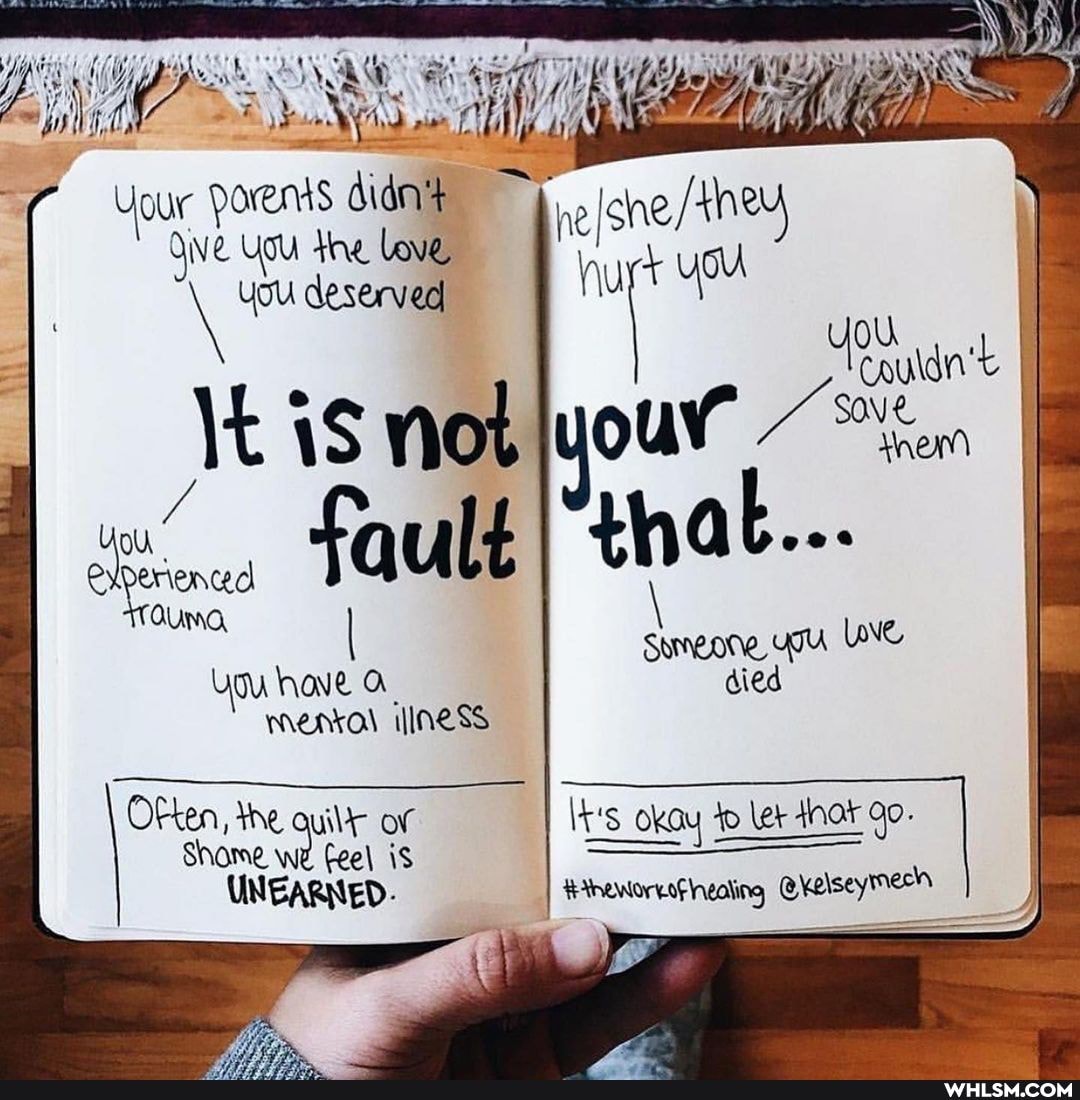 your parents didn't
give you the love
you deserved
he/she/they
hurt you
you
couldn't
save
them
It is not your
fault that...
you
experienced
trauma
you have a
mental illness
someone you love
died
Often, the guilt or
shame we feel is
UNEARNED.
It's okay to let that go.
#theworkofhealing @kelseymech
WHLSM.COM